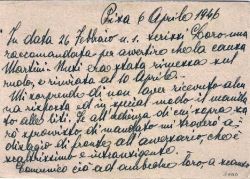 Pisa 6 Aprile 1946
In data 26 Febbraio u. s. scrissi Loro una
raccomandata per avvertire che la causa
Martini - era stata rimessa sul
ruolo, e rinviata al 10 Aprile.
Mi sorprende di non aver ricevuto alcu
na risposta ed in special modo il manda
to alle liti. Se all'udienza di cui sopra sa
rò sprovvisto, di mandato mi troverò a
disagio di fronte all'avversario, che è
e intransigente.
Comunico ciò ad ambedue loro, a scanso